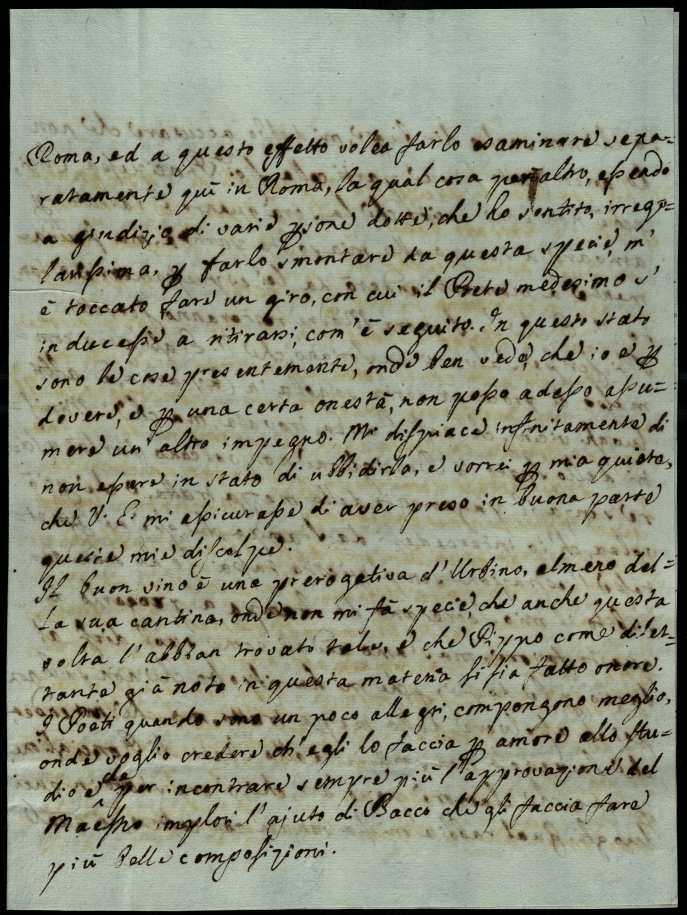 Roma, ed a questo effetto volea farlo esaminare sepa-
ratamente quì in Roma, la qual cosa per altro, essendo
a giudizio di varie psone dotte, che ho sentito, irrego-
larissima, p farlo smontare da questa specie, m'
è toccato fare un giro, con cui il Prete medesimo s'
inducesse a ritirarsi, com'è seguito. In questo stato
sono le cose presentemente, onde ben vede, che io e p
dovere, e p una certa onestà, non posso adesso assu-
mere un'altro impegno. Mi dispiace infinitamente di
non essere in stato di ubbidirla, e vorrei p mia quiete,
che V. E. mi assicurasse di aver preso in buona parte
queste mie discolpe.
Il buon vino è una prerogativa d'Urbino, almeno del-
la sua cantina, onde non mi fà specie, che anche questa
volta l'abbian trovato tale, e che Pippo come dilet-
tante già noto in questa materia si sia fatto onore.
I Poeti quando sono un poco allegri, compongono meglio,
onde voglio credere ch'egli lo faccia p amore allo stu-
dio e che per incontrare sempre più l'approvazione del
Maestro implori l'ajuto di Bacco che gli faccia fare
più belle composizioni.